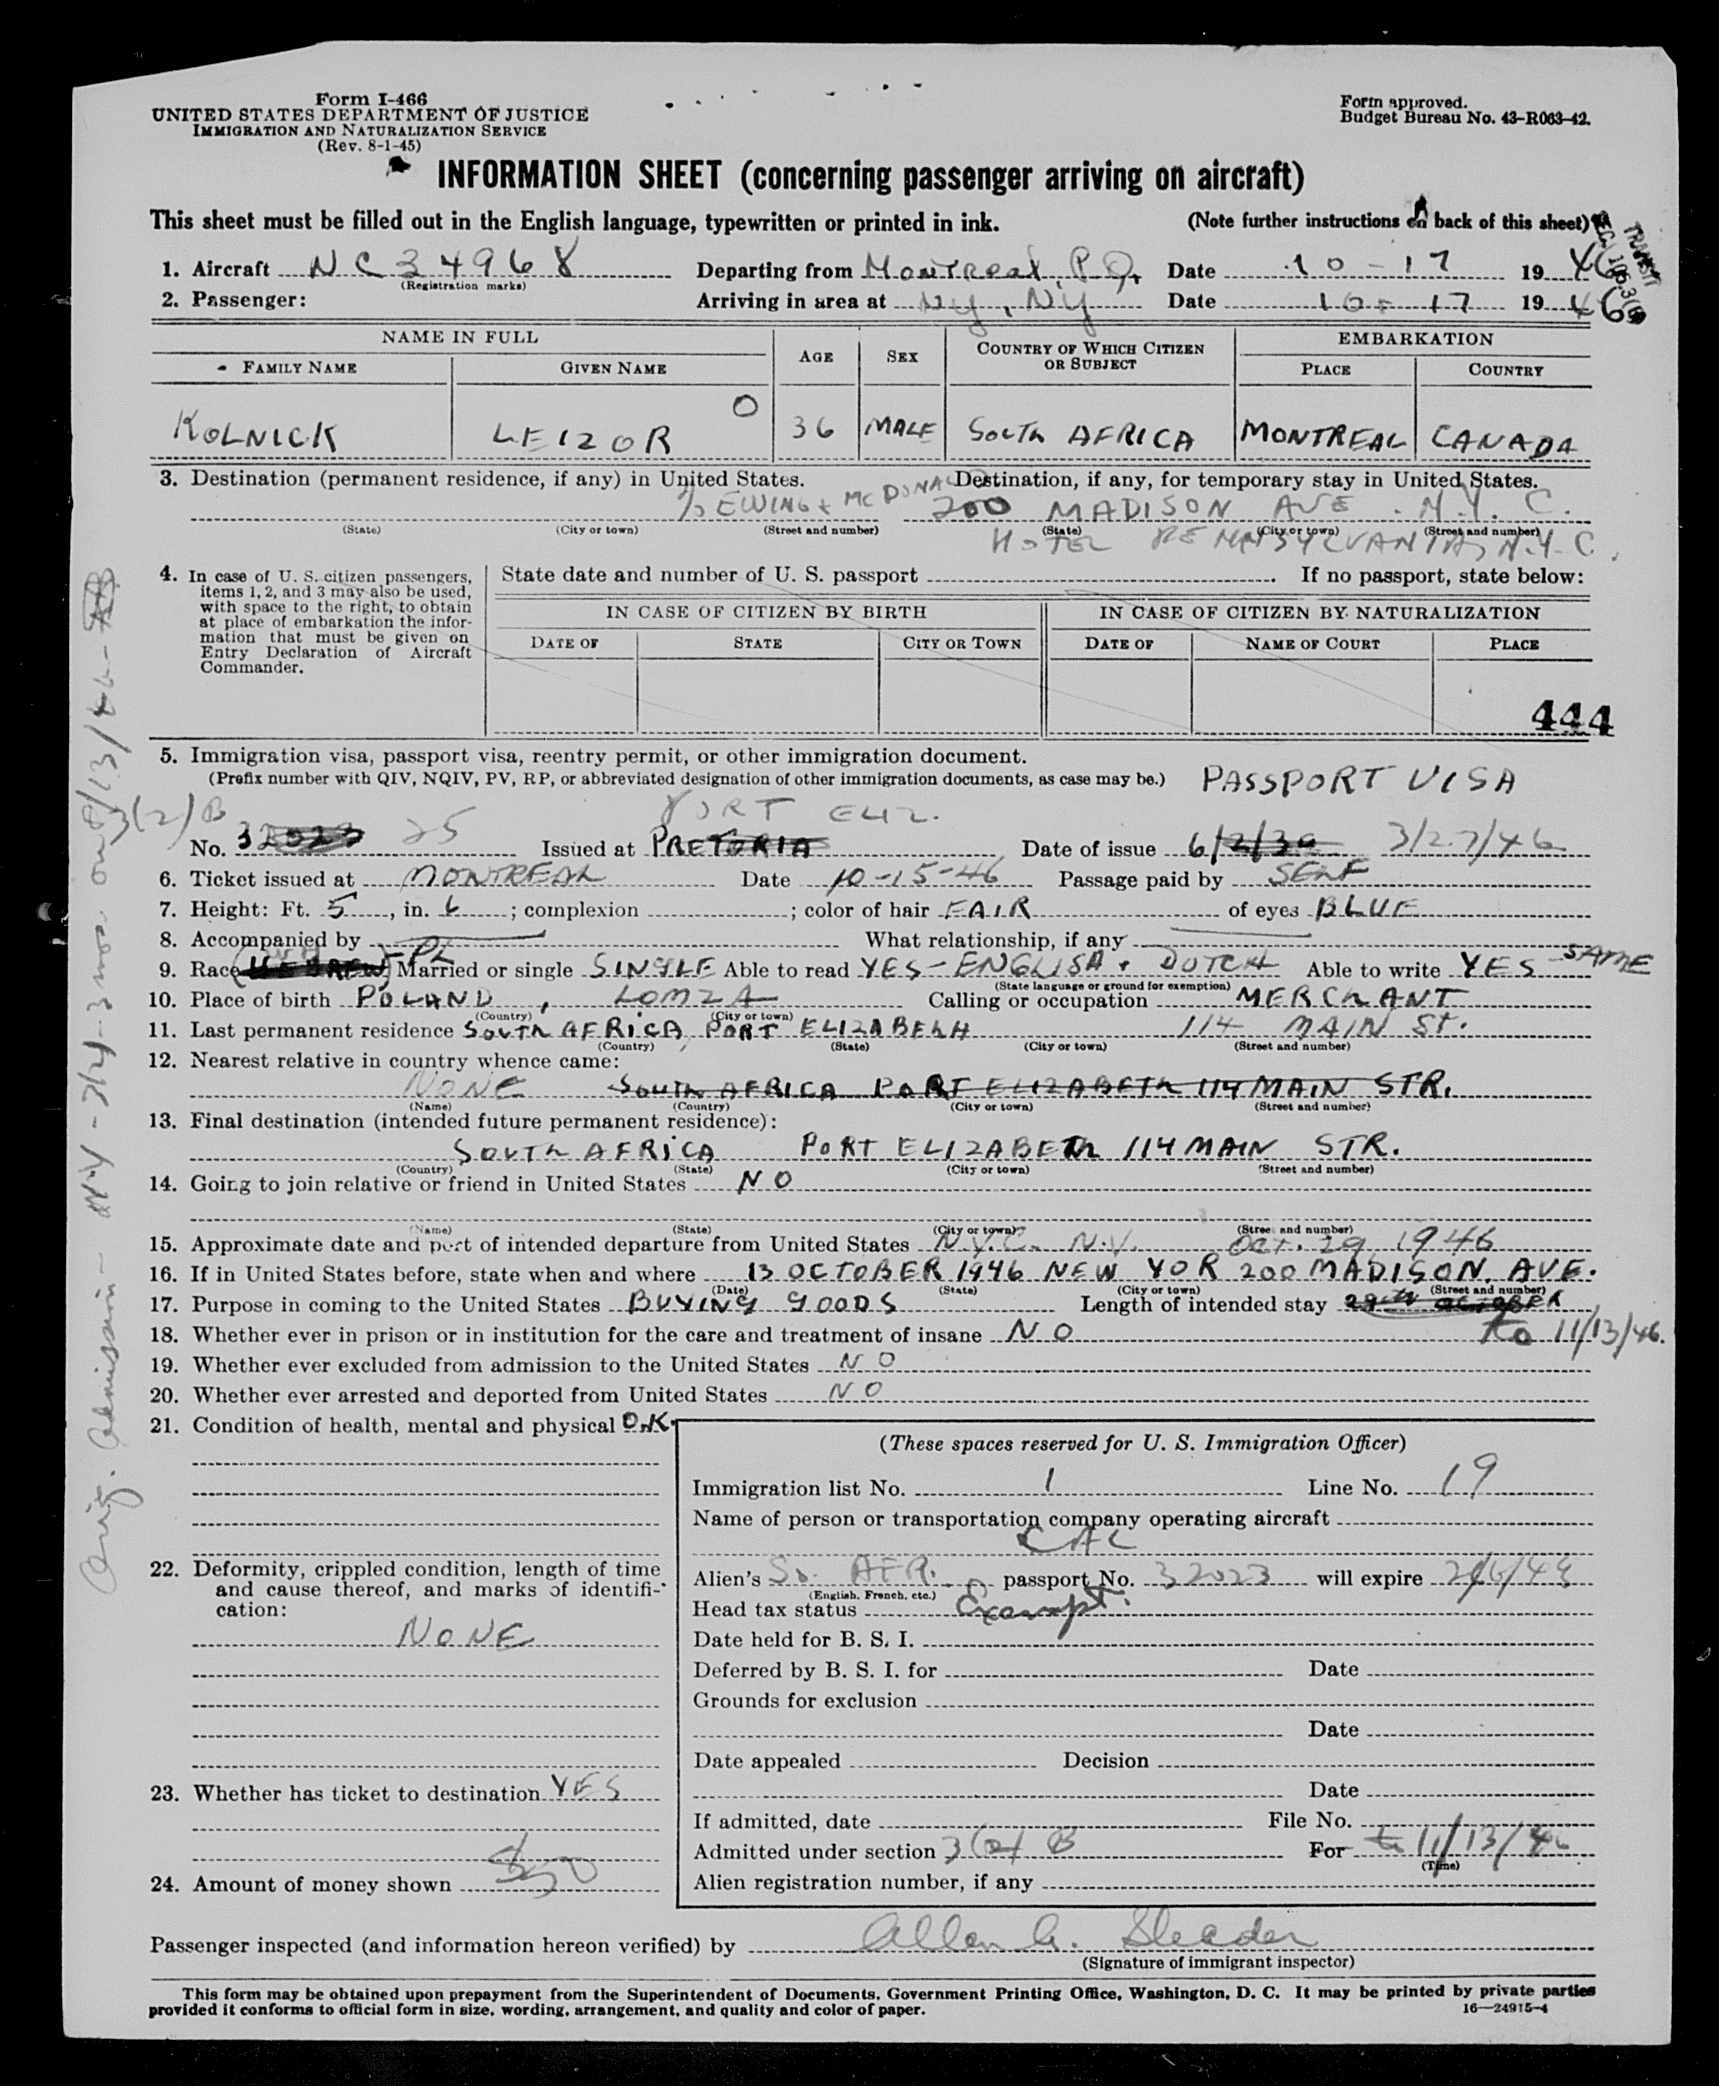 Form I-466
UNITED STATES DEPARTMENT OF JUSTICE
IMMIGRATION AND NATURALIZATION SERVICE
(Rev. 8-1-45)
Form approved.
Budget Bureau No. 43-R063-42.
INFORMATION SHEET (concerning passenger arriving on aircraft)
This sheet must be filled out in the English language, typewritten or printed in ink. (Note further instructions on back of this sheet)
TRANSIT
1. Aircraft NC34968 Departing from Montreal, P.Q. Date 10-17 1946
(Registration marks)
2. Passenger: Arriving in area at NY, NY Date 10-17 1946
NAME IN FULL AGE SEX COUNTRY OF WHICH CITIZEN OR SUBJECT EMBARKATION
FAMILY NAME GIVEN NAME PLACE COUNTRY
O
KOLNICK LEIZOR 36 MALE SOUTH AFRICA MONTREAL CANADA
3. Destination (permanent residence, if any) in United States. Destination, if any, for temporary stay in United States.
c/o EWING & MCDONALD 200 MADISON AVE. N.Y.C.
(State) (City or town) (Street and number) (State) (City or town) (Street and number)
HOTEL PENNSYLVANIA, N.Y.C.
4. In case of U. S. citizen passengers, items 1, 2, and 3 may also be used, with space to the right, to obtain at place of embarkation the information that must be given on Entry Declaration of Aircraft Commander.
State date and number of U. S. passport If no passport, state below:
IN CASE OF CITIZEN BY BIRTH IN CASE OF CITIZEN BY NATURALIZATION
DATE OF STATE CITY OR TOWN DATE OF NAME OF COURT PLACE
444
5. Immigration visa, passport visa, reentry permit, or other immigration document.
(Prefix number with QIV, NQIV, PV, RP, or abbreviated designation of other immigration documents, as case may be.) PASSPORT VISA
3(2)B PORT ELIZ.
No. 32023 25 Issued at PRETORIA Date of issue 6/2/39 3/27/46
6. Ticket issued at MONTREAL Date 10-15-46 Passage paid by SELF
7. Height: Ft. 5, in. 6; complexion ; color of hair FAIR of eyes BLUE
8. Accompanied by What relationship, if any
9. Race (HEBREW) PL Married or single SINGLE Able to read YES - ENGLISH & DUTCH Able to write YES - SAME
(State language or ground for exemption)
10. Place of birth POLAND, LOMZA Calling or occupation MERCHANT
(Country) (City or town)
11. Last permanent residence SOUTH AFRICA, PORT ELIZABEHH 114 MAIN St.
(Country) (State) (City or town) (Street and number)
12. Nearest relative in country whence came:
NONE SOUTH AFRICA PORT ELIZABETH 114 MAIN STR.
(Name) (Country) (City or town) (Street and number)
13. Final destination (intended future permanent residence):
SOUTH AFRICA PORT ELIZABETH 114 MAIN STR.
(Country) (State) (City or town) (Street and number)
14. Going to join relative or friend in United States NO
(Name) (State) (City or town) (Street and number)
15. Approximate date and port of intended departure from United States N.Y.C. N.Y. Oct. 29, 1946
16. If in United States before, state when and where 13 OCTOBER 1946 NEW YOR 200 MADISON. AVE.
(Date) (State) (City or town) (Street and number)
17. Purpose in coming to the United States BUYING GOODS Length of intended stay 29th OCTOBER
18. Whether ever in prison or in institution for the care and treatment of insane NO to 11/13/46.
19. Whether ever excluded from admission to the United States NO
20. Whether ever arrested and deported from United States NO
21. Condition of health, mental and physical O.K.
22. Deformity, crippled condition, length of time and cause thereof, and marks of identification:
NONE
23. Whether has ticket to destination YES
24. Amount of money shown $50
(These spaces reserved for U. S. Immigration Officer)
Immigration list No. 1 Line No. 19
Name of person or transportation company operating aircraft
CAC
Alien's So. AFR. passport No. 32023 will expire 2/6/48
(English, French, etc.)
Head tax status Exempt.
Date held for B. S. I.
Deferred by B. S. I. for Date
Grounds for exclusion
Date
Date appealed Decision
Date
If admitted, date File No.
Admitted under section 3(2) B For to 11/13/46
(Time)
Alien registration number, if any
Passenger inspected (and information hereon verified) by Allen G. Sleader
(Signature of immigrant inspector)
This form may be obtained upon prepayment from the Superintendent of Documents, Government Printing Office, Washington, D. C. It may be printed by private parties
provided it conforms to official form in size, wording, arrangement, and quality and color of paper. 16—24915-4
Orig. Admission - N.Y. - 3 mos. on 8/13/46